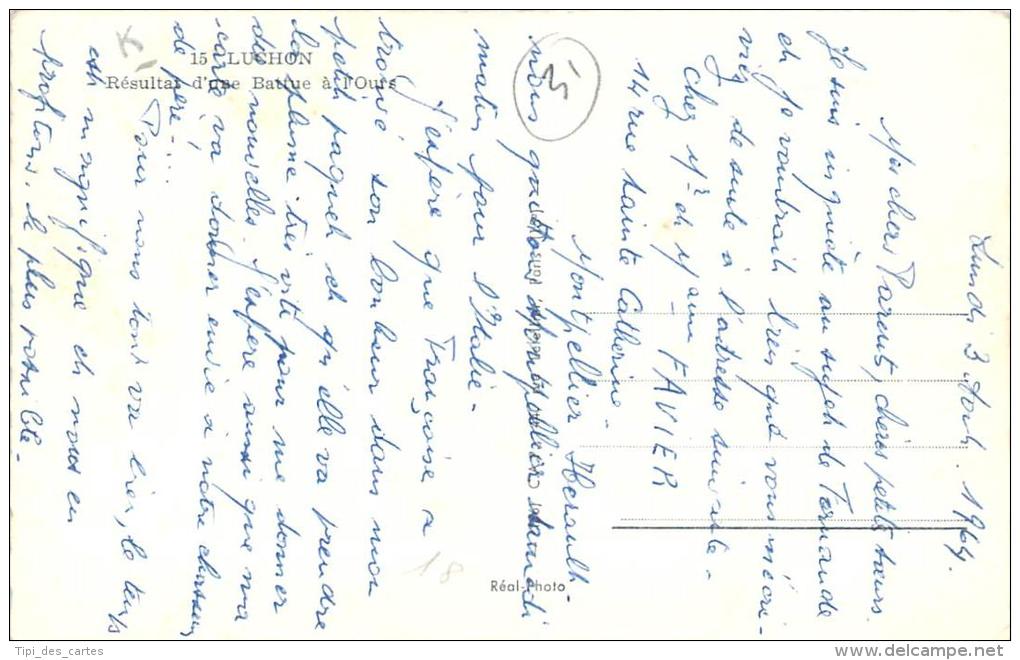 Lundi 3 Août. 1964.
Mes chers Parents, chères petites sœurs.
Je suis inquiète au sujet de Fernande
et je voudrait bien que vous m'écri-
viez de suite à l'adresse suivante -
Chez Mr et Mme FAVIER
14 rue Sainte Catherine -
Montpellier Herault -
nous quittons Montpellier samedi
matin pour l'Italie -
J'espère que Françoise a
trouvé son bonheur dans mon
petit paquet et qu'elle va prendre
la plume très vite pour me donner
des nouvelles. J'espère aussi que ma
carte va donner envie à notre chasseur
de père - ...
Pour nous tout va bien, le temps
est magnifique et nous en
profitons le plus possible -
15 LUCHON
Résultat d'une Battue à l'Ours
Réal-Photo
18
Tipi_des_cartes